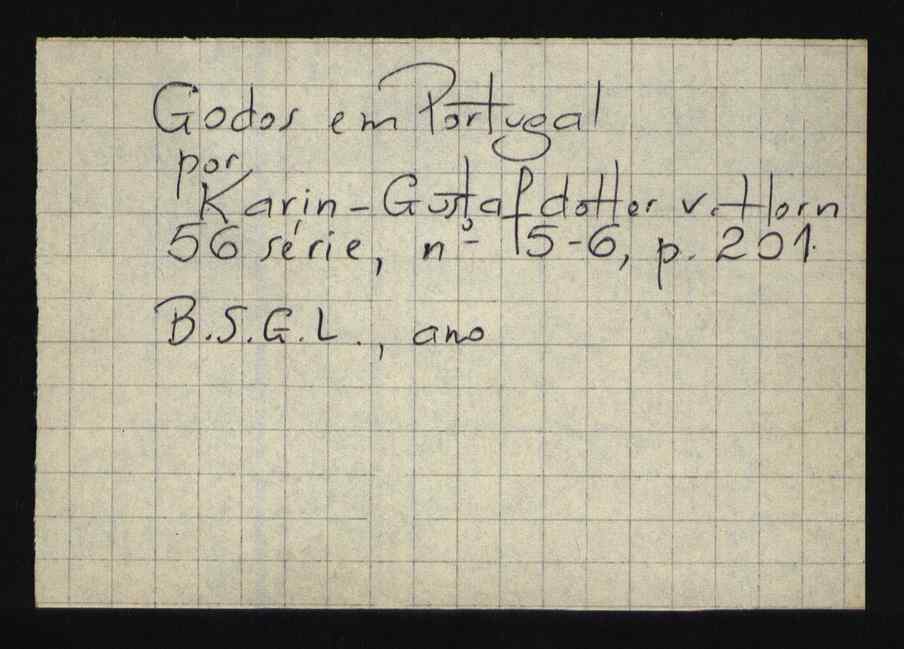 Godos em Portugal
por
Karin-Gustafdotter v. Horn
56 série, nº 5-6, p. 201.
B.S.G.L., ano